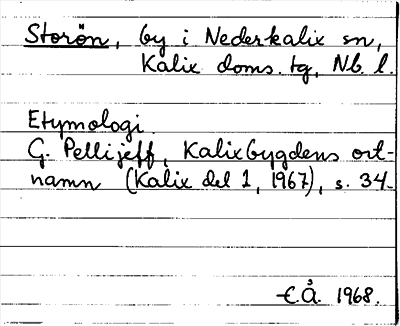 Storön, by i Nederkalix sn,
Kalix doms. tg, Nb. l.
Etymologi.
G. Pellijeff, Kalixbygdens ort-
namn (Kalix del 1, 1967), s. 34.
E.Å. 1968.